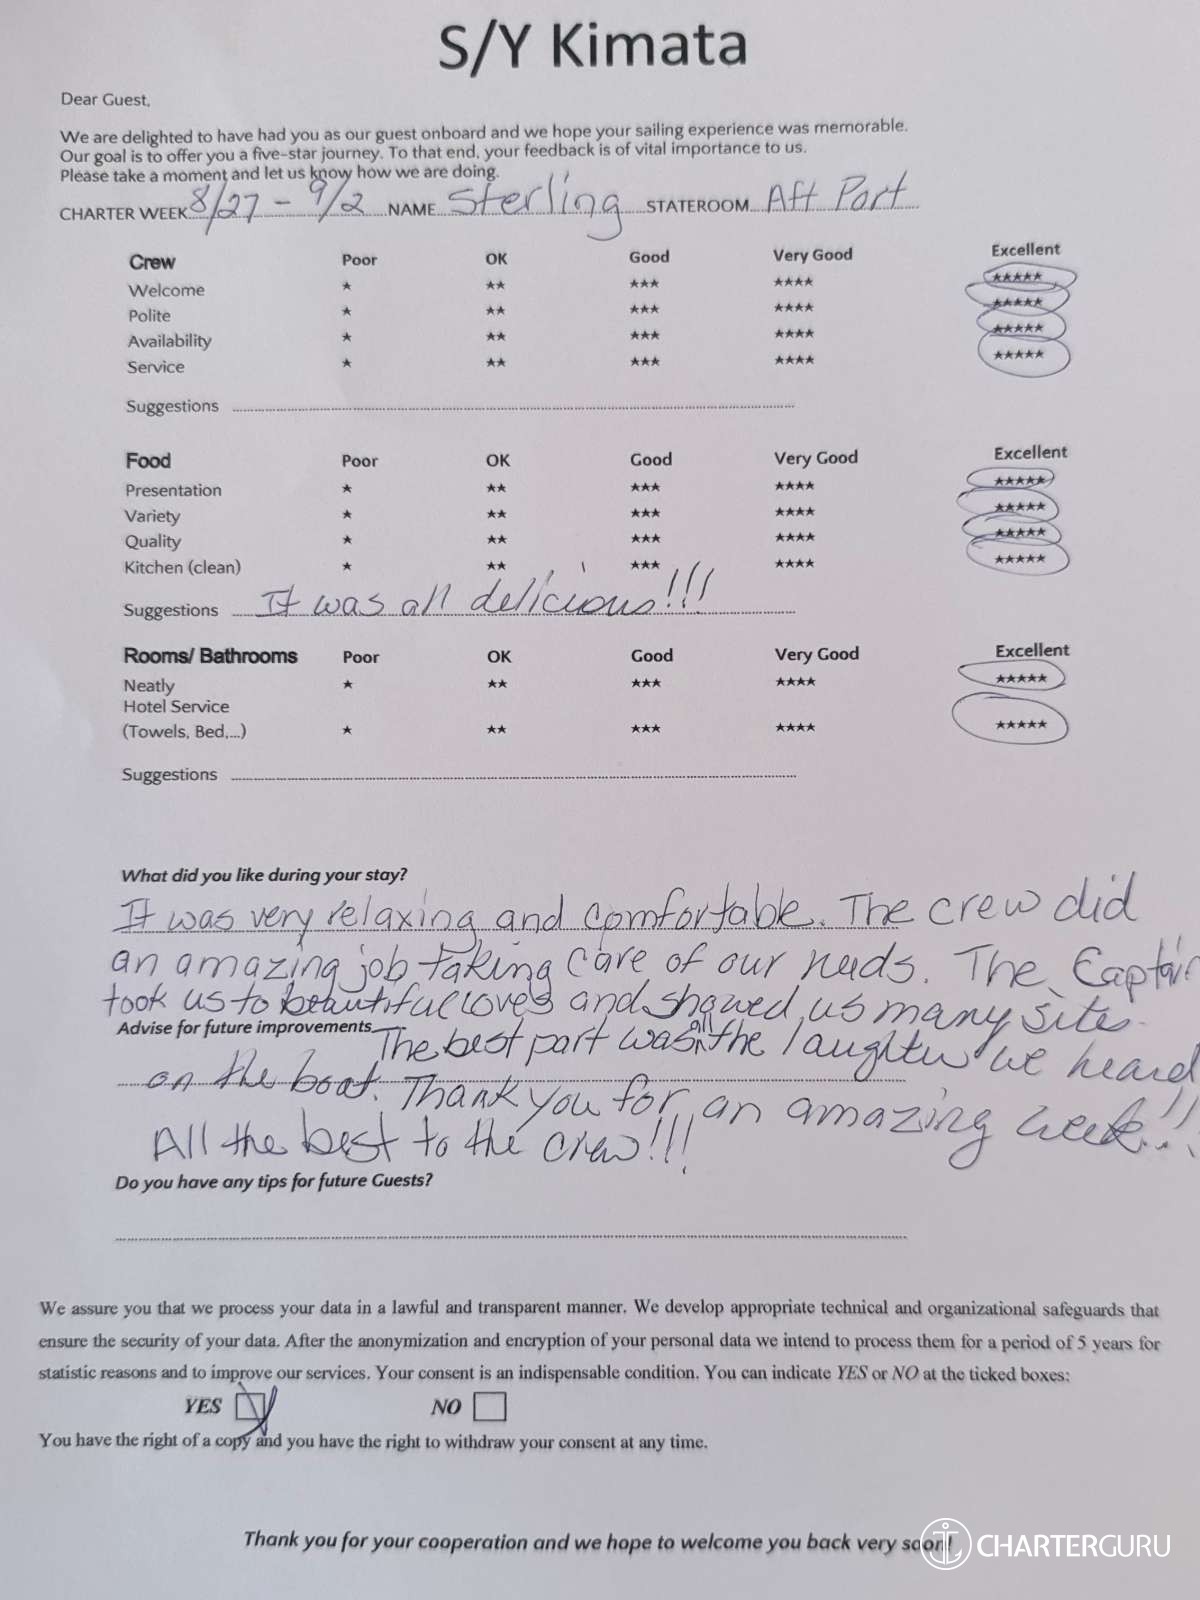 S/Y Kimata
Dear Guest,
We are delighted to have had you as our guest onboard and we hope your sailing experience was memorable.
Our goal is to offer you a five-star journey. To that end, your feedback is of vital importance to us.
Please take a moment and let us know how we are doing.
CHARTER WEEK 8/27 - 9/2 NAME Sterling STATEROOM Aft Port
Crew Poor OK Good Very Good Excellent
Welcome ★ ★★ ★★★ ★★★★ ★★★★★
Polite ★ ★★ ★★★ ★★★★ ★★★★★
Availability ★ ★★ ★★★ ★★★★ ★★★★★
Service ★ ★★ ★★★ ★★★★ ★★★★★
Suggestions
Food Poor OK Good Very Good Excellent
Presentation ★ ★★ ★★★ ★★★★ ★★★★★
Variety ★ ★★ ★★★ ★★★★ ★★★★★
Quality ★ ★★ ★★★ ★★★★ ★★★★★
Kitchen (clean) ★ ★★ ★★★ ★★★★ ★★★★★
Suggestions It was all delicious!!!
Rooms/ Bathrooms Poor OK Good Very Good Excellent
Neatly ★ ★★ ★★★ ★★★★ ★★★★★
Hotel Service
(Towels, Bed,...) ★ ★★ ★★★ ★★★★ ★★★★★
Suggestions
What did you like during your stay?
It was very relaxing and comfortable. The crew did
an amazing job taking care of our needs. The Captain
took us to beautiful coves and showed us many sites.
Advise for future improvements The best part was all the laughter we heard
on the boat. Thank you for an amazing week!!
All the best to the crew!!!
Do you have any tips for future Guests?
We assure you that we process your data in a lawful and transparent manner. We develop appropriate technical and organizational safeguards that
ensure the security of your data. After the anonymization and encryption of your personal data we intend to process them for a period of 5 years for
statistic reasons and to improve our services. Your consent is an indispensable condition. You can indicate YES or NO at the ticked boxes:
YES NO
You have the right of a copy and you have the right to withdraw your consent at any time.
Thank you for your cooperation and we hope to welcome you back very soon!
CHARTERGURU